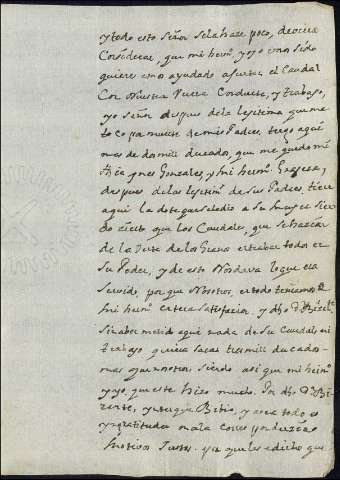 y todo esto Señor se la hace poco, devoiera
Considerar, que mi herm.º y yo como sido
quiere emos ayudado a juntar el Caudal
Con Nuestra Buena Conducta, y trabajo,
yo Señor despues de la lexitima que me
to co pa muerte de mis Padres, tengo aqui
mas de dos mill ducados, que me quedo mi
tia Gonzalez, y mi herm.º
despues de las lexitim.s de sus Padres, tiene
aqui la dote que se le dio a su muger sien
do cierto que los Caudales, que se hacian
de la Venta de los Granos entraban todos en
Su Poder, y de esto No dava lo que era
servido, por que Nosotros, en todo teniamos de
mi herm.º entera satisfacion, y dho D.n
Sin aber metido aqui nada de Su Caudal, ni
trabajo quiera sacar tres mill ducados
mas que nosotros, siendo asi que mi herm.º
y yo, que este hizo mucho. Por dho D.n
zente, y ningun, y a vea todo es
yngratitudes mala correspondencia
motivos Justos. ya que les e dicho que